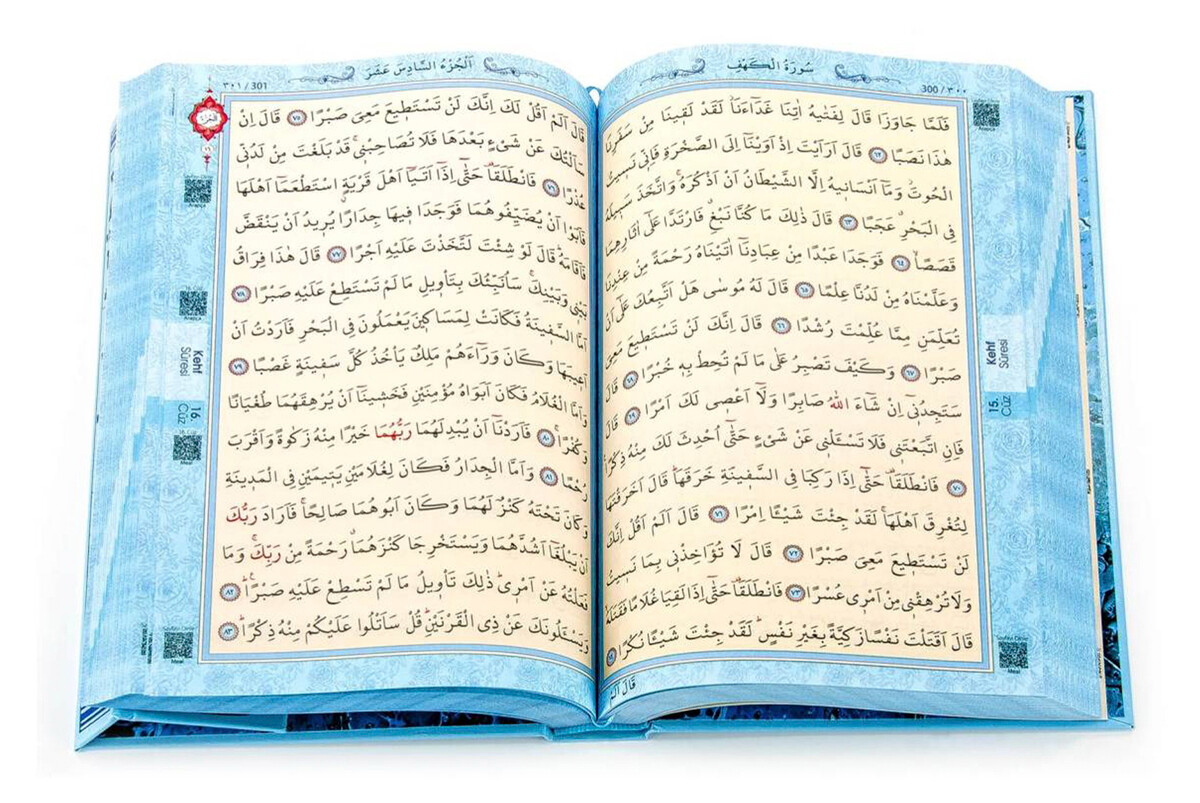 سُورَةُ الْكَهْفِ
300 / ٣٠٠
فَلَمَّا جَاوَزَا قَالَ لِفَتٰيهُ اٰتِنَا غَدَٓاءَنَاۘ لَقَدْ لَق۪ينَا مِنْ سَفَرِنَا
هٰذَا نَصَبًا ٦٢ قَالَ اَرَاَيْتَ اِذْ اَوَيْنَٓا اِلَى الصَّخْرَةِ فَاِنّ۪ي نَس۪يتُ
الْحُوتَۘ وَمَٓا اَنْسَان۪يهُ اِلَّا الشَّيْطَانُ اَنْ اَذْكُرَهُۚ وَاتَّخَذَ سَب۪يلَهُ
فِي الْبَحْرِۗ عَجَبًا ٦٣ قَالَ ذٰلِكَ مَا كُنَّا نَبْغِۗ فَارْتَدَّا عَلٰٓى اٰثَارِهِمَا
قَصَصًاۙ ٦٤ فَوَجَدَا عَبْدًا مِنْ عِبَادِنَٓا اٰتَيْنَاهُ رَحْمَةً مِنْ عِنْدِنَا
وَعَلَّمْنَاهُ مِنْ لَدُنَّا عِلْمًا ٦٥ قَالَ لَهُ مُوسٰى هَلْ اَتَّبِعُكَ عَلٰٓى اَنْ
تُعَلِّمَنِ مِمَّا عُلِّمْتَ رُشْدًا ٦٦ قَالَ اِنَّكَ لَنْ تَسْتَط۪يعَ مَعِيَ
صَبْرًا ٦٧ وَكَيْفَ تَصْبِرُ عَلٰى مَا لَمْ تُحِطْ بِه۪ خُبْرًا ٦٨ قَالَ
سَتَجِدُن۪ٓي اِنْ شَٓاءَ اللّٰهُ صَابِرًا وَلَٓا اَعْص۪ي لَكَ اَمْرًا ٦٩ قَالَ
فَاِنِ اتَّبَعْتَن۪ي فَلَا تَسْـَٔلْن۪ي عَنْ شَيْءٍ حَتّٰٓى اُحْدِثَ لَكَ مِنْهُ ذِكْرًا
٧٠ فَانْطَلَقَا۠ حَتّٰٓى اِذَا رَكِبَا فِي السَّف۪ينَةِ خَرَقَهَاۜ قَالَ اَخَرَقْتَهَا
لِتُغْرِقَ اَهْلَهَاۚ لَقَدْ جِئْتَ شَيْـًٔا اِمْرًا ٧١ قَالَ اَلَمْ اَقُلْ اِنَّكَ
لَنْ تَسْتَط۪يعَ مَعِيَ صَبْرًا ٧٢ قَالَ لَا تُؤَاخِذْن۪ي بِمَا نَس۪يتُ
وَلَا تُرْهِقْن۪ي مِنْ اَمْر۪ي عُسْرًا ٧٣ فَانْطَلَقَا۠ حَتّٰٓى اِذَا لَقِيَا غُلَامًا فَقَتَلَهُۙ
قَالَ اَقَتَلْتَ نَفْسًا زَكِيَّةً بِغَيْرِ نَفْسٍۜ لَقَدْ جِئْتَ شَيْـًٔا نُكْرًا ٧٤
Kehf
Sûresi
15.
Cüz
اَلْجُزْءُ السَّادِسَ عَشَرَ
٣٠١ / 301
قَالَ اَلَمْ اَقُلْ لَكَ اِنَّكَ لَنْ تَسْتَط۪يعَ مَعِيَ صَبْرًا ٧٥ قَالَ اِنْ
سَاَلْتُكَ عَنْ شَيْءٍ بَعْدَهَا فَلَا تُصَاحِبْن۪يۚ قَدْ بَلَغْتَ مِنْ لَدُنّ۪ي
عُذْرًا ٧٦ فَانْطَلَقَا۠ حَتّٰٓى اِذَٓا اَتَيَٓا اَهْلَ قَرْيَةٍۨ اسْتَطْعَمَٓا اَهْلَهَا
فَاَبَوْا اَنْ يُضَيِّفُوهُمَا فَوَجَدَا ف۪يهَا جِدَارًا يُر۪يدُ اَنْ يَنْقَضَّ
فَاَقَامَهُۜ قَالَ لَوْ شِئْتَ لَتَّخَذْتَ عَلَيْهِ اَجْرًا ٧٧ قَالَ هٰذَا فِرَاقُ
بَيْن۪ي وَبَيْنِكَۚ سَاُنَبِّئُكَ بِتَأْو۪يلِ مَا لَمْ تَسْتَطِعْ عَلَيْهِ صَبْرًا ٧٨
اَمَّا السَّف۪ينَةُ فَكَانَتْ لِمَسَاك۪ينَ يَعْمَلُونَ فِي الْبَحْرِ فَاَرَدْتُ اَنْ
اَع۪يبَهَا وَكَانَ وَرَٓاءَهُمْ مَلِكٌ يَأْخُذُ كُلَّ سَف۪ينَةٍ غَصْبًا ٧٩
وَاَمَّا الْغُلَامُ فَكَانَ اَبَوَاهُ مُؤْمِنَيْنِ فَخَش۪ينَٓا اَنْ يُرْهِقَهُمَا طُغْيَانًا
وَكُفْرًاۚ ٨٠ فَاَرَدْنَٓا اَنْ يُبْدِلَهُمَا رَبُّهُمَا خَيْرًا مِنْهُ زَكٰوةً وَاَقْرَبَ
رُحْمًا ٨١ وَاَمَّا الْجِدَارُ فَكَانَ لِغُلَامَيْنِ يَت۪يمَيْنِ فِي الْمَد۪ينَةِ
وَكَانَ تَحْتَهُ كَنْزٌ لَهُمَا وَكَانَ اَبُوهُمَا صَالِحًاۚ فَاَرَادَ رَبُّكَ
اَنْ يَبْلُغَٓا اَشُدَّهُمَا وَيَسْتَخْرِجَا كَنْزَهُمَاۗ رَحْمَةً مِنْ رَبِّكَۚ وَمَا
فَعَلْتُهُ عَنْ اَمْر۪يۜ ذٰلِكَ تَأْو۪يلُ مَا لَمْ تَسْطِعْ عَلَيْهِ صَبْرًاۜ ٨٢
وَيَسْـَٔلُونَكَ عَنْ ذِي الْقَرْنَيْنِۜ قُلْ سَاَتْلُوا عَلَيْكُمْ مِنْهُ ذِكْرًاۜ ٨٣
Kehf
Sûresi
16.
Cüz
Meal